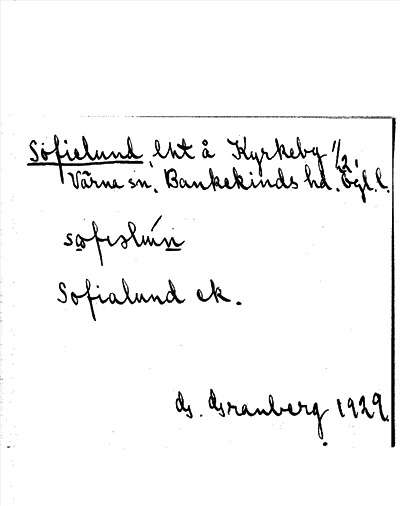 Sofielund, lht å Kyrkeby 1/2,
Värne sn, Bankekinds hd. Ögl. l.
sofɩəlún
Sofialund ek.
G. Granberg 1929.